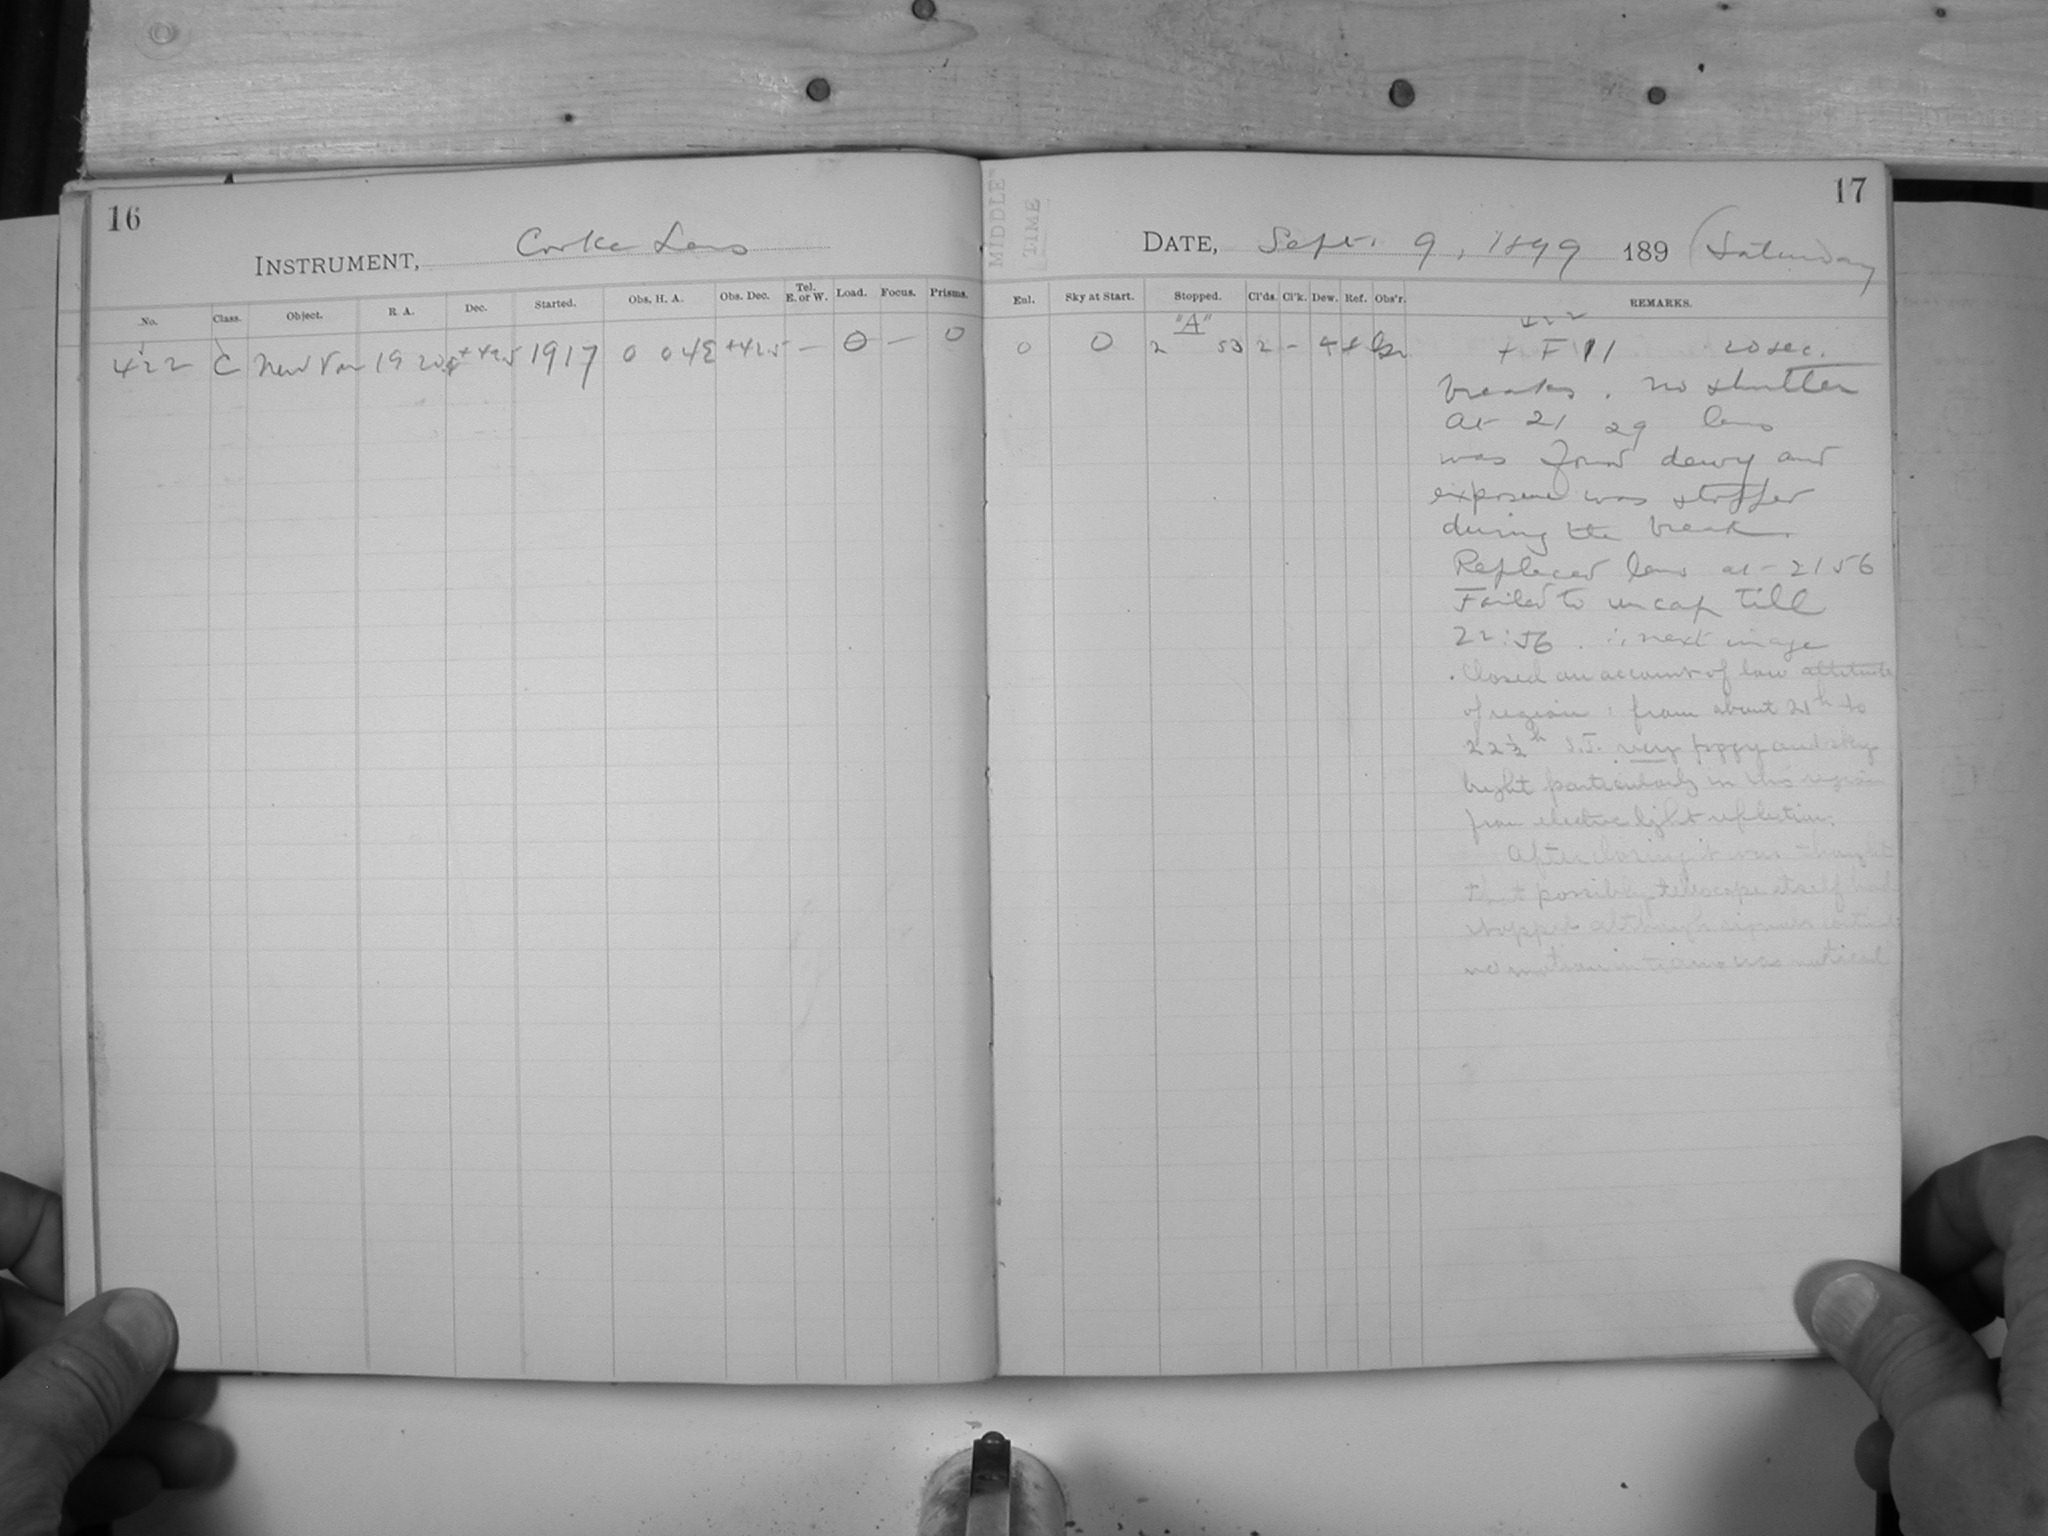 16
INSTRUMENT, Cooke Lens
No. Class. Object. R. A. Dec. Started. Obs. H. A. Obs. Dec. Tel. E. or W. Load. Focus. Prisms.
422 C New Var 19 20. +42.5 1917 0 04E +42.5 — 0 — 0
MIDDLE
TIME
17
DATE, Sept. 9, 1899 189 (Saturday
Enl. Sky at Start. Stopped. Cl'ds. Cl'k. Dew. Ref. Obs'r. REMARKS.
"A" 422
0 0 2 53 2 - + F 11 20 sec.
breaks. no shutter
At 21 29 lens
was found dewy and
exposure was stopped
during the break.
Replaced lens at - 21 56
Failed to uncap till
22:56. ∴ next image
. Closed on account of low altitude
of region: from about 21h to
22½h S.T. very foggy and sky
bright particularly in this region
from electric light reflection.
After closing it was thought
that possibly telescope itself had
stopped although
no motion in was noticed